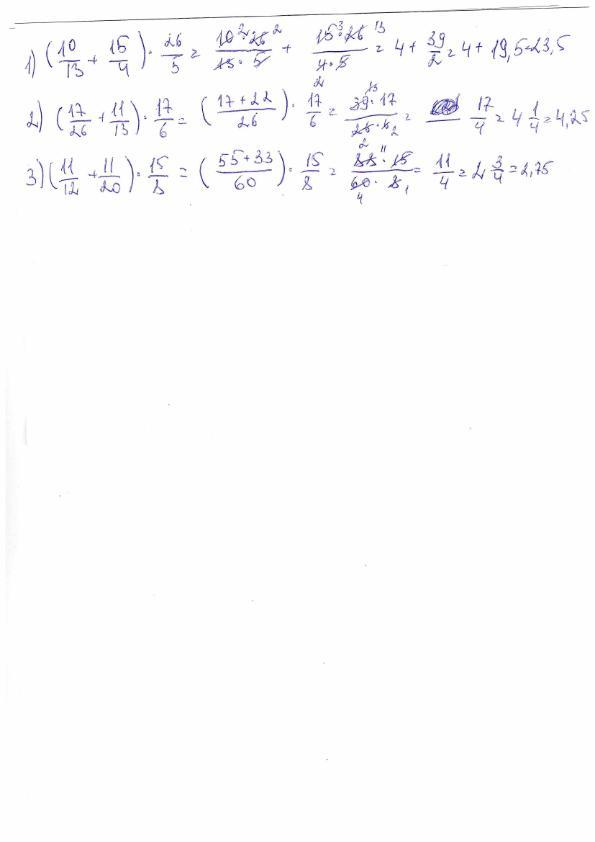 1) (10/13 + 15/4) · 26/5 = 10·26/13·5 + 15·26/4·5 = 4 + 39/2 = 4 + 19,5 = 23,5
2) (17/26 + 11/13) · 17/6 = (17+22/26) · 17/6 = 39·17/26·6 = 17/4 = 4 1/4 = 4,25
3) (11/12 + 11/20) · 15/8 = (55+33/60) · 15/8 = 88·15/60·8 = 11/4 = 2 3/4 = 2,75